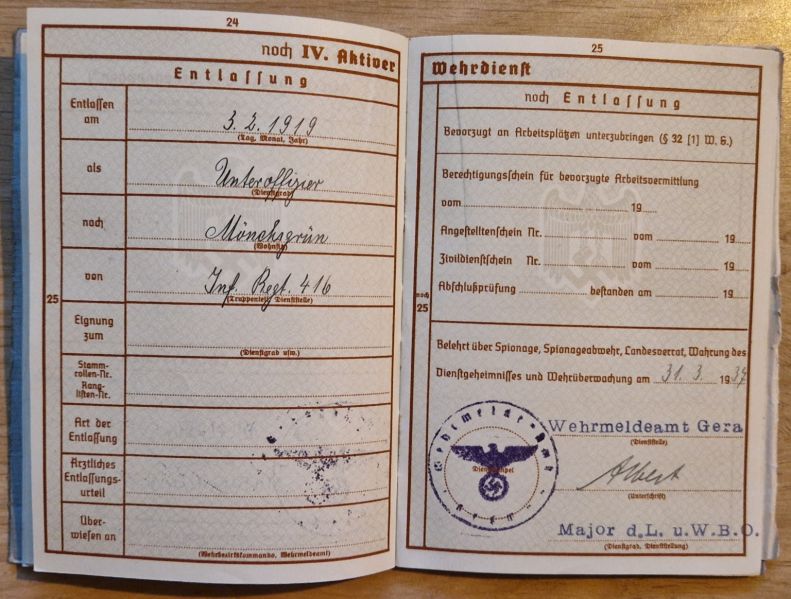 24
noch IV. Aktiver
Entlassung
Entlassen am
3. 2. 1919
(Tag, Monat, Jahr)
als
Unteroffizier
(Dienstgrad)
nach
Mönchsgrün
(Wohnsitz)
von
Inf. Regt. 416
(Truppenteil, Dienststelle)
25
Eignung zum
(Dienstgrad usw.)
Stamm-
rollen-Nr.
Rang-
listen-Nr.
Art der
Entlassung
Ärztliches
Entlassungs-
urteil
Über-
wiesen an
(Wehrbezirkskommando, Wehrmeldeamt)
25
Wehrdienst
noch Entlassung
Bevorzugt an Arbeitsplätzen unterzubringen (§ 32 [1] W. G.)
Berechtigungsschein für bevorzugte Arbeitsvermittlung
vom 19
Angestelltenschein Nr. vom 19
Zivildienstschein Nr. vom 19
Abschlußprüfung bestanden am 19
noch 25
Belehrt über Spionage, Spionageabwehr, Landesverrat, Wahrung des
Dienstgeheimnisses und Wehrüberwachung am 31. 3. 1937
Wehrmeldeamt Gera
(Dienststelle)
Wehrmelde-Amt
Gera
Dienststempel
Albert
(Unterschrift)
Major d.L. u.W.B.O.
(Dienstgrad, Dienststellung)